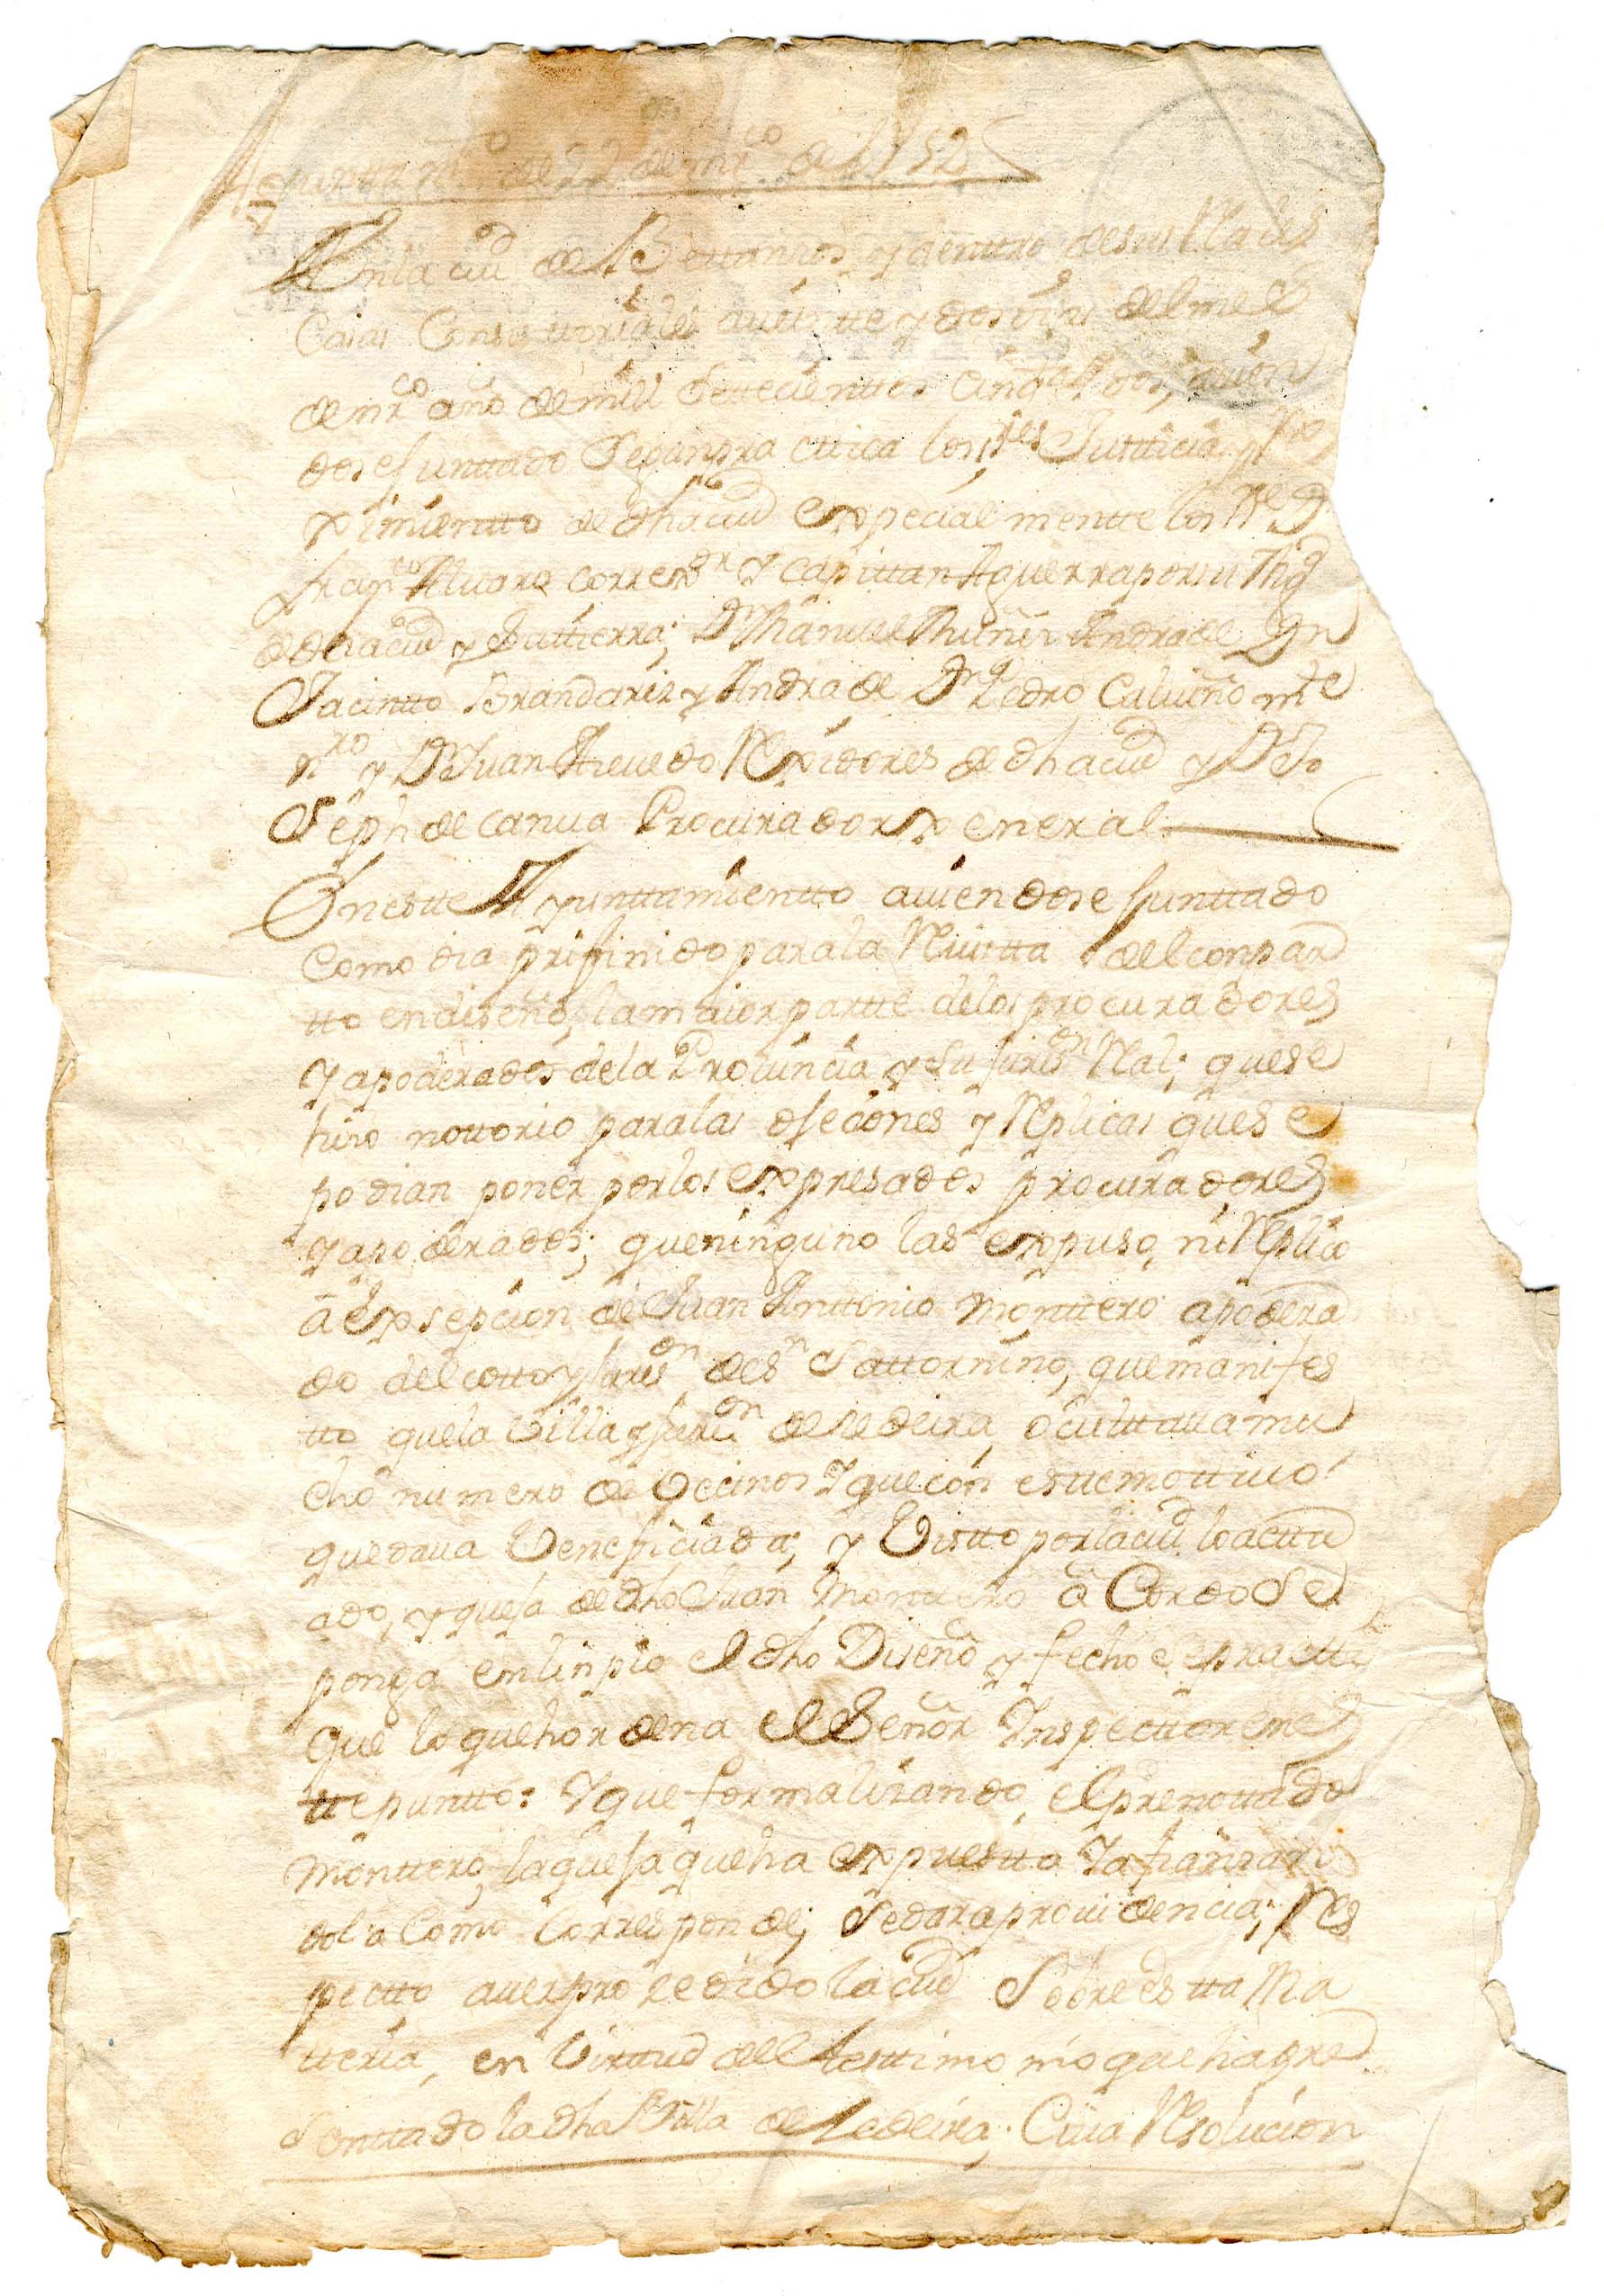 de 22 de mrco de 1752
En la ciud de Bettanzos y denttro de sus Rales
Casas Consisttoriales a veintte y dos dias del mes
de mrco año de mill settecienttos cinqta y dos, avien
dose junttado segun pra cttica los sres Justticia y Re
ximientto de dha ciud expecialmentte los sres Dn
Francco Alvaro correxor y capittan A guerra por su Magd
de dha ciud y su tierra; Dn Manuel Muñiz Andrade Dn
Jacintto Brandariz y Andrade Dn Pedro Calviño m
nro y Dn Juan Azevedo Rexidores de dha ciud y Dn Jo
seph de canva Procurador xeneral
En estte Ayunttamientto aviendose junttado
como dia prifinido para la Revistta del conpar
tto en diseño, la maior partte de los procuradores
y apoderados de la Provincia y su juris.on Ral; que se
hizo nottorio para las ojeciones y Replicas que se
podian poner por los expresados procuradores
y apoderados; que ninguno las expuso, ni Replico
a exsepcion de Juan Anttonio Monttero apodera
do del cotto y juris.on de Sn Sattornino, que manifes
tto que la Villa y juri.on de Sedeira, oculttava mu
cho numero de Vecinos Y que con estte mottivo
quedava Veneficiada; y Vistto por la ciud lo acttu
ado, y queja de dho Juan Monttero aCordo Se
ponga en linpio el dho Diseño y fecho se practti
que lo que hordena el Señor Inspecttor en es
tte puntto: Y que formalizando el prenottado
Monttero, la queja que ha expuestto Y afianzan
dola Como Corresponde; se dara providencia; Res
pectto aver prozedido la ciud Sobre estta Ma
tteria, en Virttud del testtimonio que ha pre
senttado la dha Villa de Sedeira; Cuia Resolucion